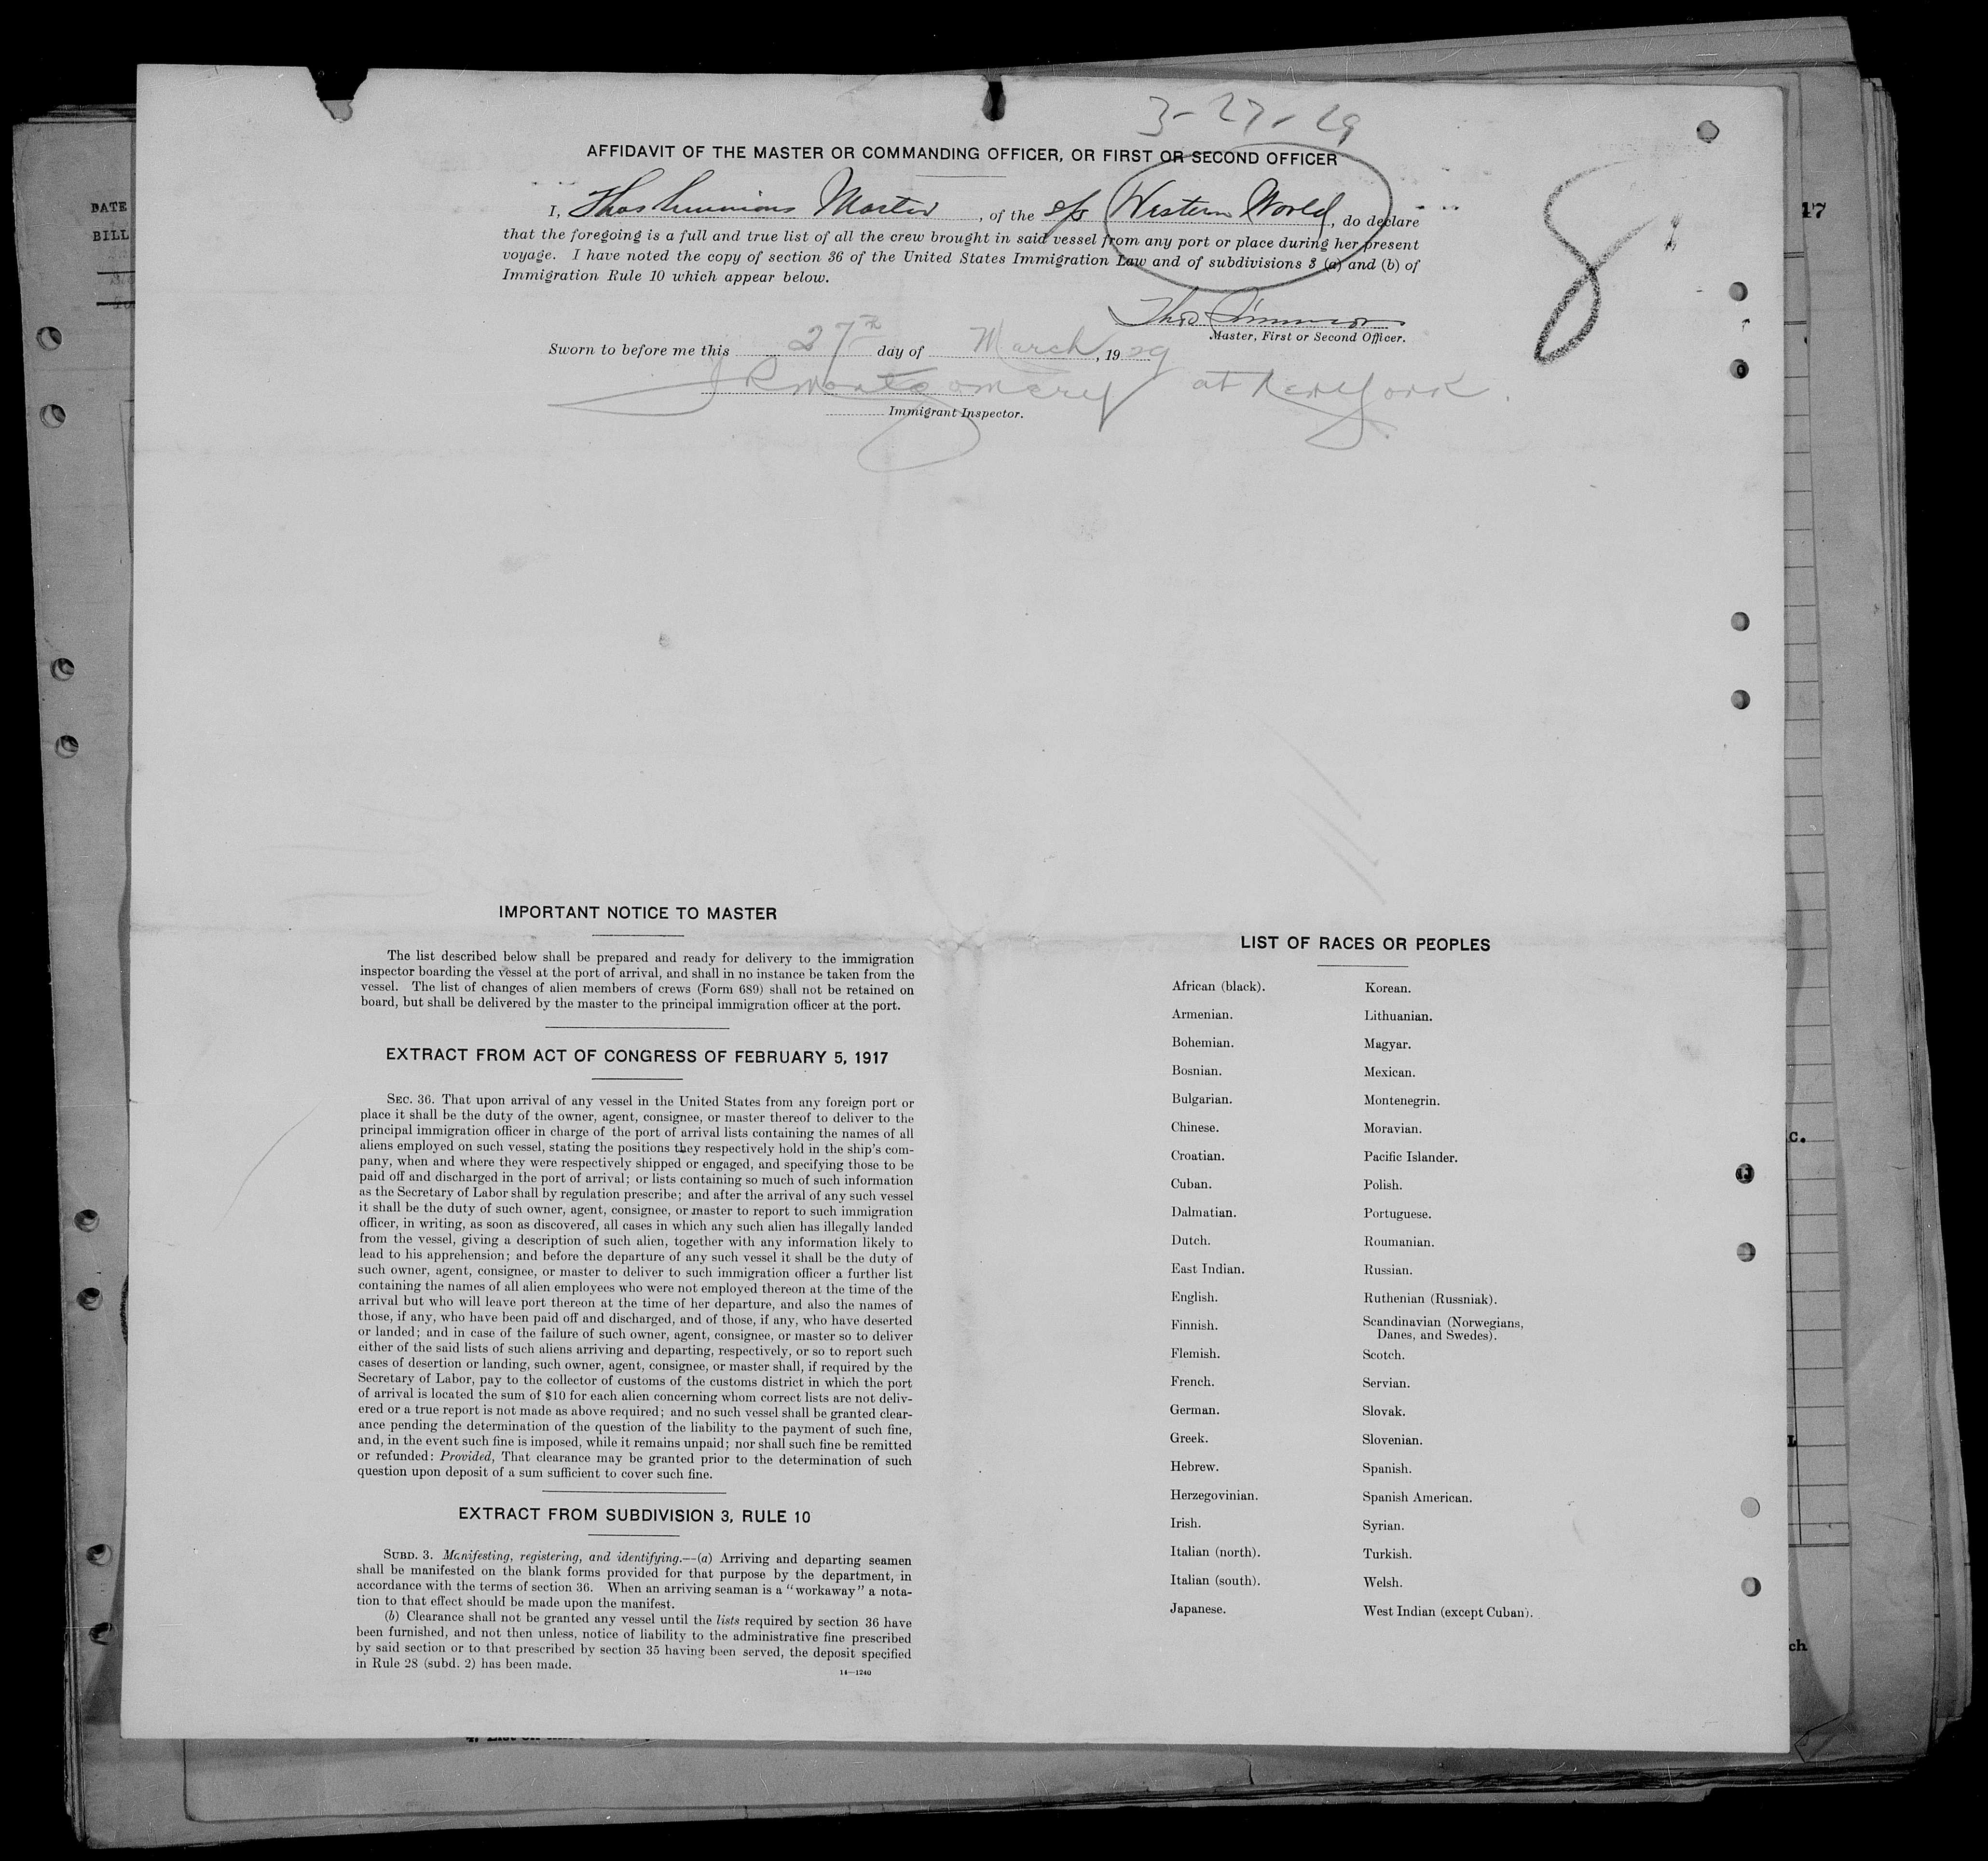 3-27-29
AFFIDAVIT OF THE MASTER OR COMMANDING OFFICER, OR FIRST OR SECOND OFFICER
I, Thos Simmons Master, of the s/s Western World, do declare
that the foregoing is a full and true list of all the crew brought in said vessel from any port or place during her present
voyage. I have noted the copy of section 36 of the United States Immigration Law and of subdivisions 3 (a) and (b) of
Immigration Rule 10 which appear below.
8
Thos Simmons
Master, First or Second Officer.
Sworn to before me this 27th day of March, 1929
J R Montgomery at New York.
Immigrant Inspector.
DATE
BILL
47
IMPORTANT NOTICE TO MASTER
The list described below shall be prepared and ready for delivery to the immigration
inspector boarding the vessel at the port of arrival, and shall in no instance be taken from the
vessel. The list of changes of alien members of crews (Form 689) shall not be retained on
board, but shall be delivered by the master to the principal immigration officer at the port.
EXTRACT FROM ACT OF CONGRESS OF FEBRUARY 5, 1917
SEC. 36. That upon arrival of any vessel in the United States from any foreign port or
place it shall be the duty of the owner, agent, consignee, or master thereof to deliver to the
principal immigration officer in charge of the port of arrival lists containing the names of all
aliens employed on such vessel, stating the positions they respectively hold in the ship's com-
pany, when and where they were respectively shipped or engaged, and specifying those to be
paid off and discharged in the port of arrival; or lists containing so much of such information
as the Secretary of Labor shall by regulation prescribe; and after the arrival of any such vessel
it shall be the duty of such owner, agent, consignee, or master to report to such immigration
officer, in writing, as soon as discovered, all cases in which any such alien has illegally landed
from the vessel, giving a description of such alien, together with any information likely to
lead to his apprehension; and before the departure of any such vessel it shall be the duty of
such owner, agent, consignee, or master to deliver to such immigration officer a further list
containing the names of all alien employees who were not employed thereon at the time of the
arrival but who will leave port thereon at the time of her departure, and also the names of
those, if any, who have been paid off and discharged, and of those, if any, who have deserted
or landed; and in case of the failure of such owner, agent, consignee, or master so to deliver
either of the said lists of such aliens arriving and departing, respectively, or so to report such
cases of desertion or landing, such owner, agent, consignee, or master shall, if required by the
Secretary of Labor, pay to the collector of customs of the customs district in which the port
of arrival is located the sum of $10 for each alien concerning whom correct lists are not deliv-
ered or a true report is not made as above required; and no such vessel shall be granted clear-
ance pending the determination of the question of the liability to the payment of such fine,
and, in the event such fine is imposed, while it remains unpaid; nor shall such fine be remitted
or refunded: Provided, That clearance may be granted prior to the determination of such
question upon deposit of a sum sufficient to cover such fine.
EXTRACT FROM SUBDIVISION 3, RULE 10
SUBD. 3. Manifesting, registering, and identifying.—(a) Arriving and departing seamen
shall be manifested on the blank forms provided for that purpose by the department, in
accordance with the terms of section 36. When an arriving seaman is a "workaway" a nota-
tion to that effect should be made upon the manifest.
(b) Clearance shall not be granted any vessel until the lists required by section 36 have
been furnished, and not then unless, notice of liability to the administrative fine prescribed
by said section or to that prescribed by section 35 having been served, the deposit specified
in Rule 28 (subd. 2) has been made.
14—1240
LIST OF RACES OR PEOPLES
African (black).
Armenian.
Bohemian.
Bosnian.
Bulgarian.
Chinese.
Croatian.
Cuban.
Dalmatian.
Dutch.
East Indian.
English.
Finnish.
Flemish.
French.
German.
Greek.
Hebrew.
Herzegovinian.
Irish.
Italian (north).
Italian (south).
Japanese.
Korean.
Lithuanian.
Magyar.
Mexican.
Montenegrin.
Moravian.
Pacific Islander.
Polish.
Portuguese.
Roumanian.
Russian.
Ruthenian (Russniak).
Scandinavian (Norwegians,
Danes, and Swedes).
Scotch.
Servian.
Slovak.
Slovenian.
Spanish.
Spanish American.
Syrian.
Turkish.
Welsh.
West Indian (except Cuban).